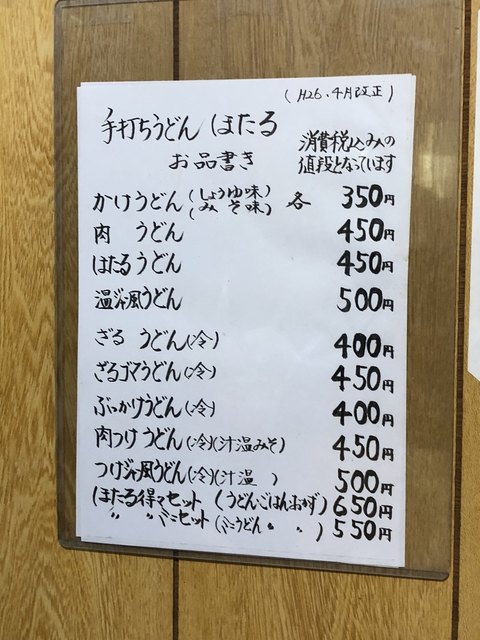 (H26.4月改正)
手打ちうどん ほたる
お品書き
消費税込みの
値段となっています
かけうどん(しょうゆ味)(みそ味) 各 350円
肉 うどん 450円
ほたるうどん 450円
温ジャー風うどん 500円
ざる うどん(冷) 400円
ざるゴマうどん(冷) 450円
ぶっかけうどん(冷) 400円
肉つけうどん(冷)(汁温みそ) 450円
つけジャー風うどん(冷)(汁温 ) 500円
ほたる得々セット (うどん・ごはん・おかず) 650円
〃 〃 ミニセット (ミニうどん 〃 〃 ) 550円